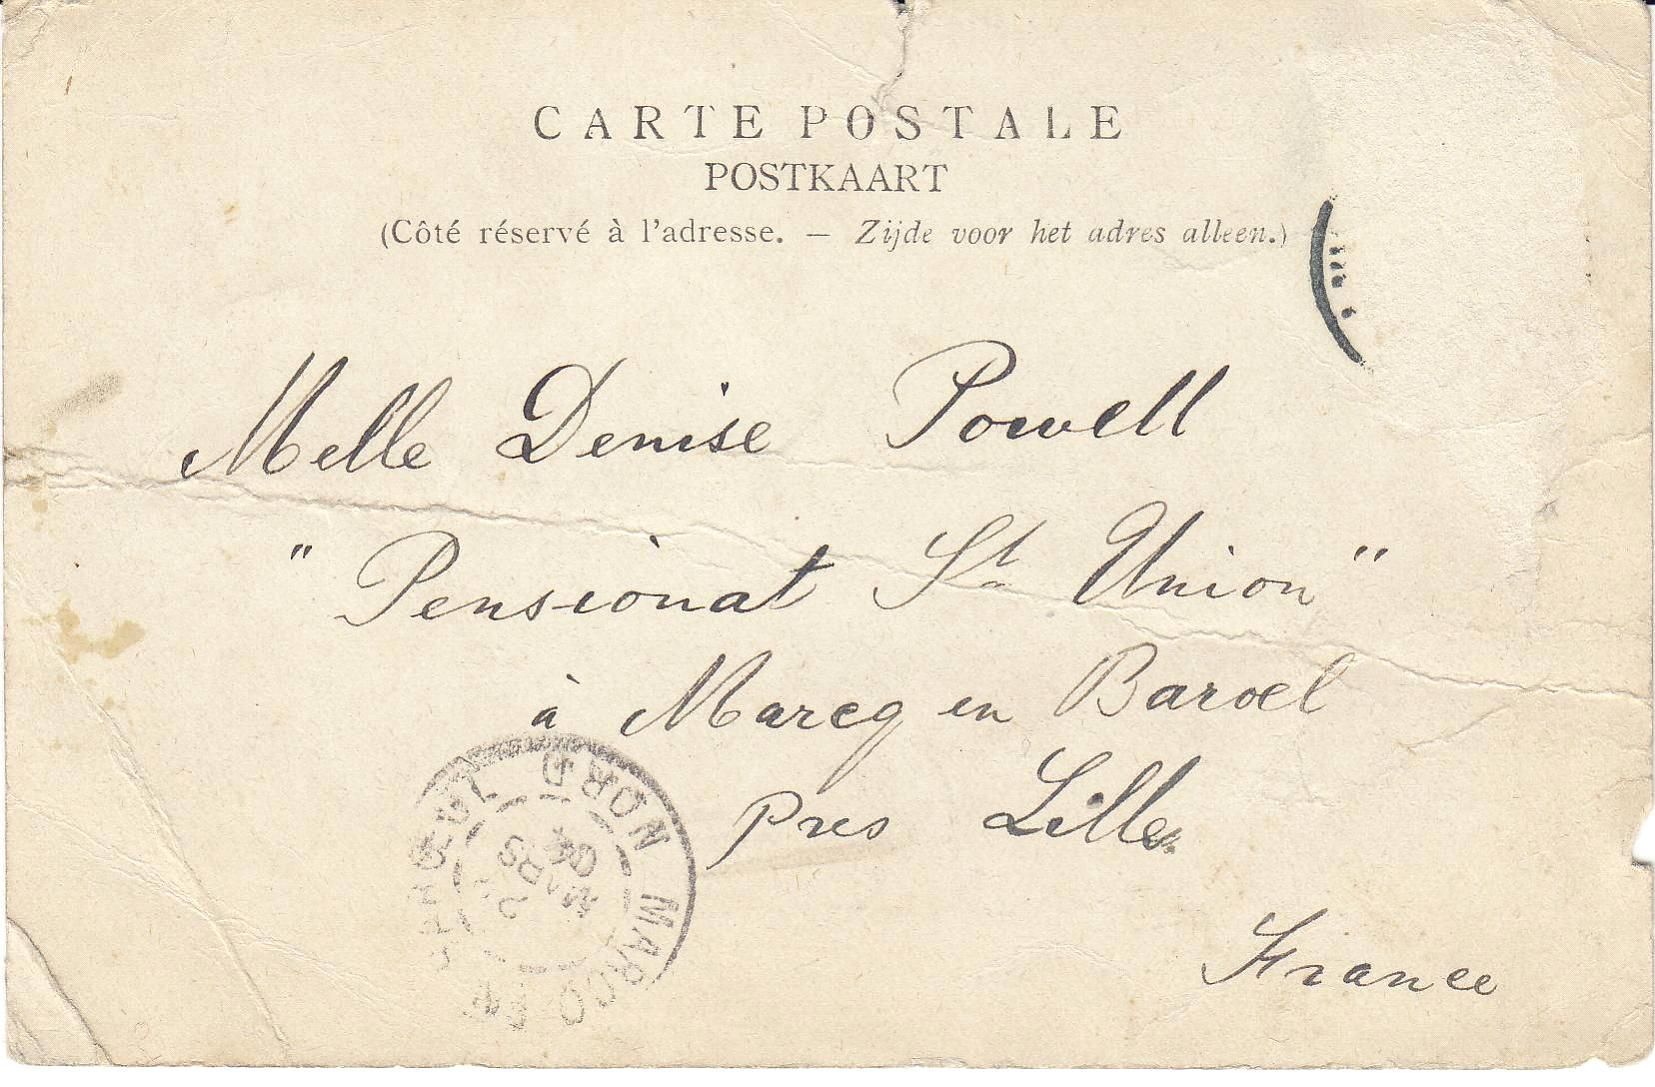 CARTE POSTALE
POSTKAART
(Côté réservé à l'adresse. — Zijde voor het adres alleen.)
Melle Denise Powell
"Pensionat St Union"
à Marcq en Baroel
Pres Lille
France
NORD
MARCQ
MARS
04